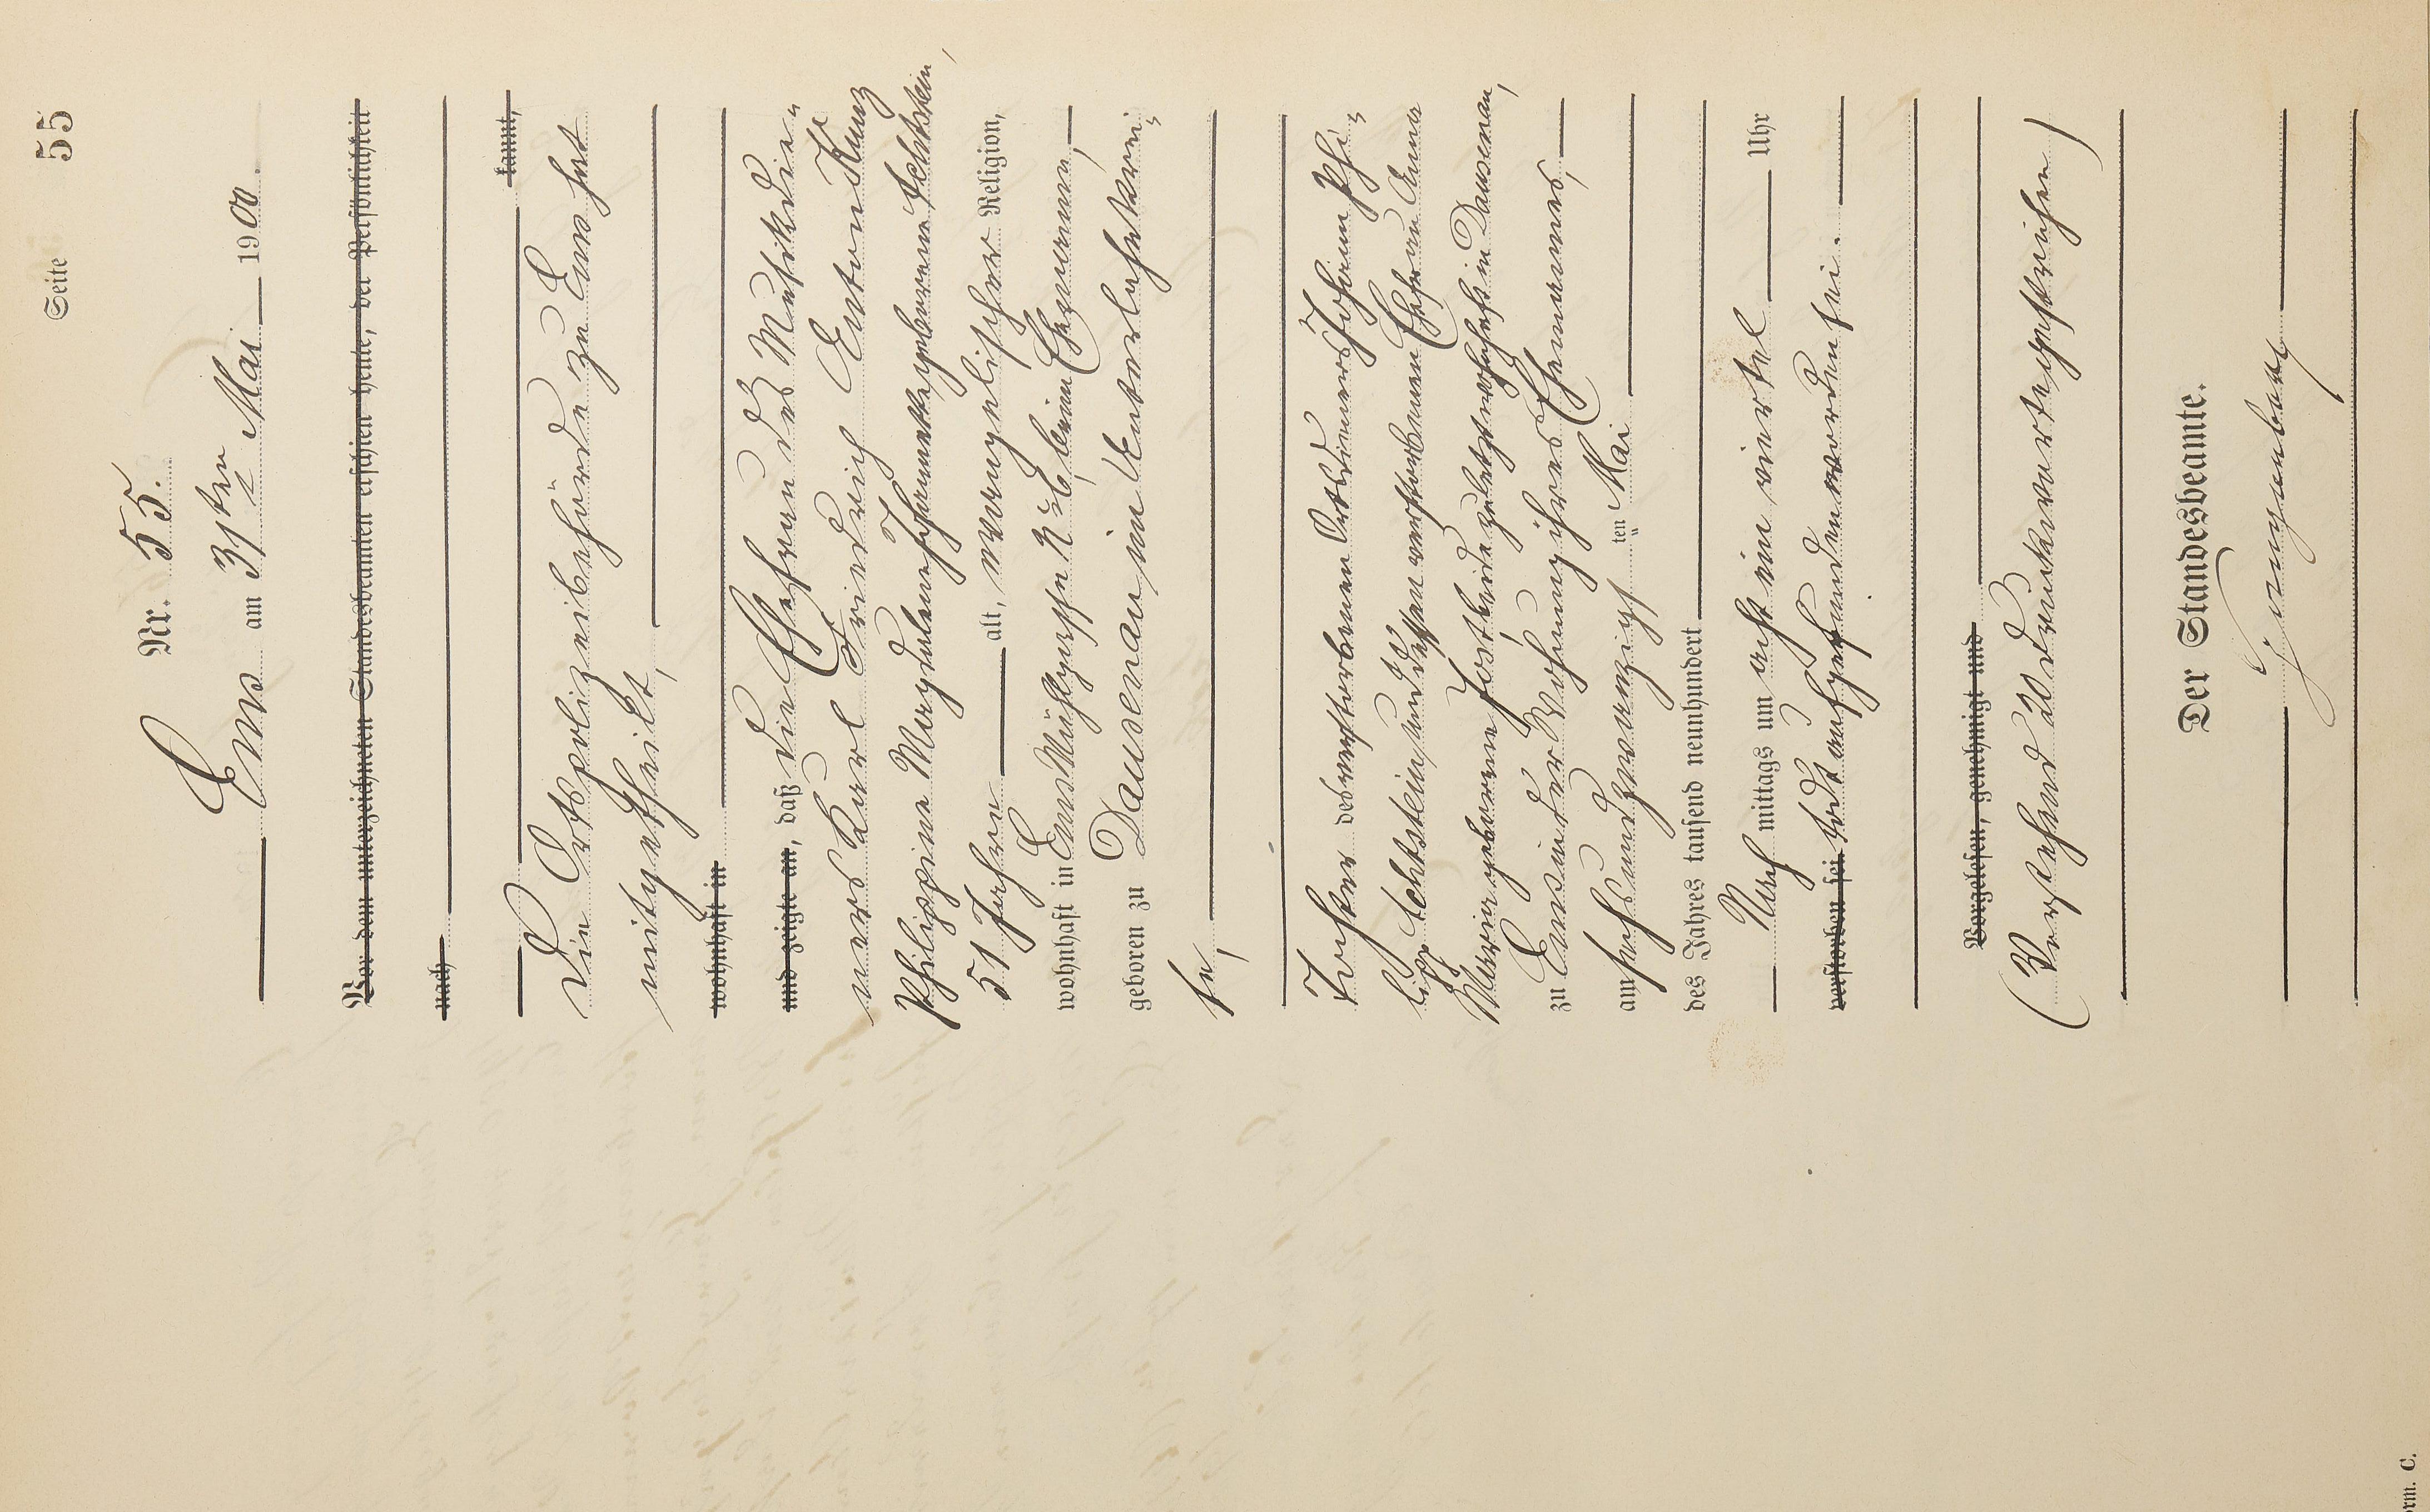 Seite 55
Nr. 55.
Ems am 31ten Mai 1900.
Vor dem unterzeichneten Standesbeamten erschien heute, der Persönlichkeit
nach
kannt,
Die Ortspolizeibehörde zu Ems hat
mitgetheilt,
wohnhaft in
und zeigte an, daß die Ehefrau des Musikdie„
ners Karl Friedrich Anton Kunz
Philippine Magdalene Johannette geborene Echtstein,
51 Jahre alt, evangelischer Religion,
wohnhaft in Ems Mühlgasse № 6, beim Ehemann,
geboren zu Dausenau im Unterlahnkrei„
se,
Tochter des verstorbenen Johann Phi„
lipp Echtstein und dessen verstorbenen Ehefrau Anna
Maria geborene Jost beide zuletzt wohnhaft in Dausenau,
zu Ems in der Wohnung ihres Ehemannes,
am sechsundzwanzigsten Mai
des Jahres tausend neunhundert
Nach mittags um acht ein viertel Uhr
verstorben sei. todt aufgefunden worden sei.
Vorgelesen, genehmigt und
(Vorstehend 20 Druckworte gestrichen)
Der Standesbeamte.
rm. C.